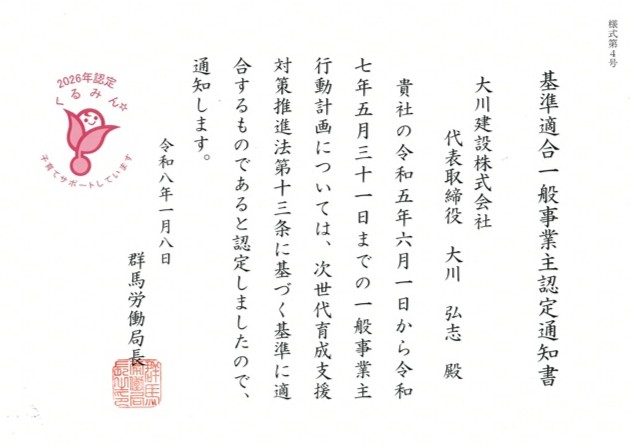 様式第4号
基準適合一般事業主認定通知書
大川建設株式会社
代表取締役　大川　弘志　殿
貴社の令和五年六月一日から令和
七年五月三十一日までの一般事業主
行動計画については、次世代育成支援
対策推進法第十三条に基づく基準に適
合するものであると認定しましたので、
通知します。
令和八年一月八日
群馬労働局長
群馬
労働局
長之印
2026年認定
くるみん
子育てサポートしています